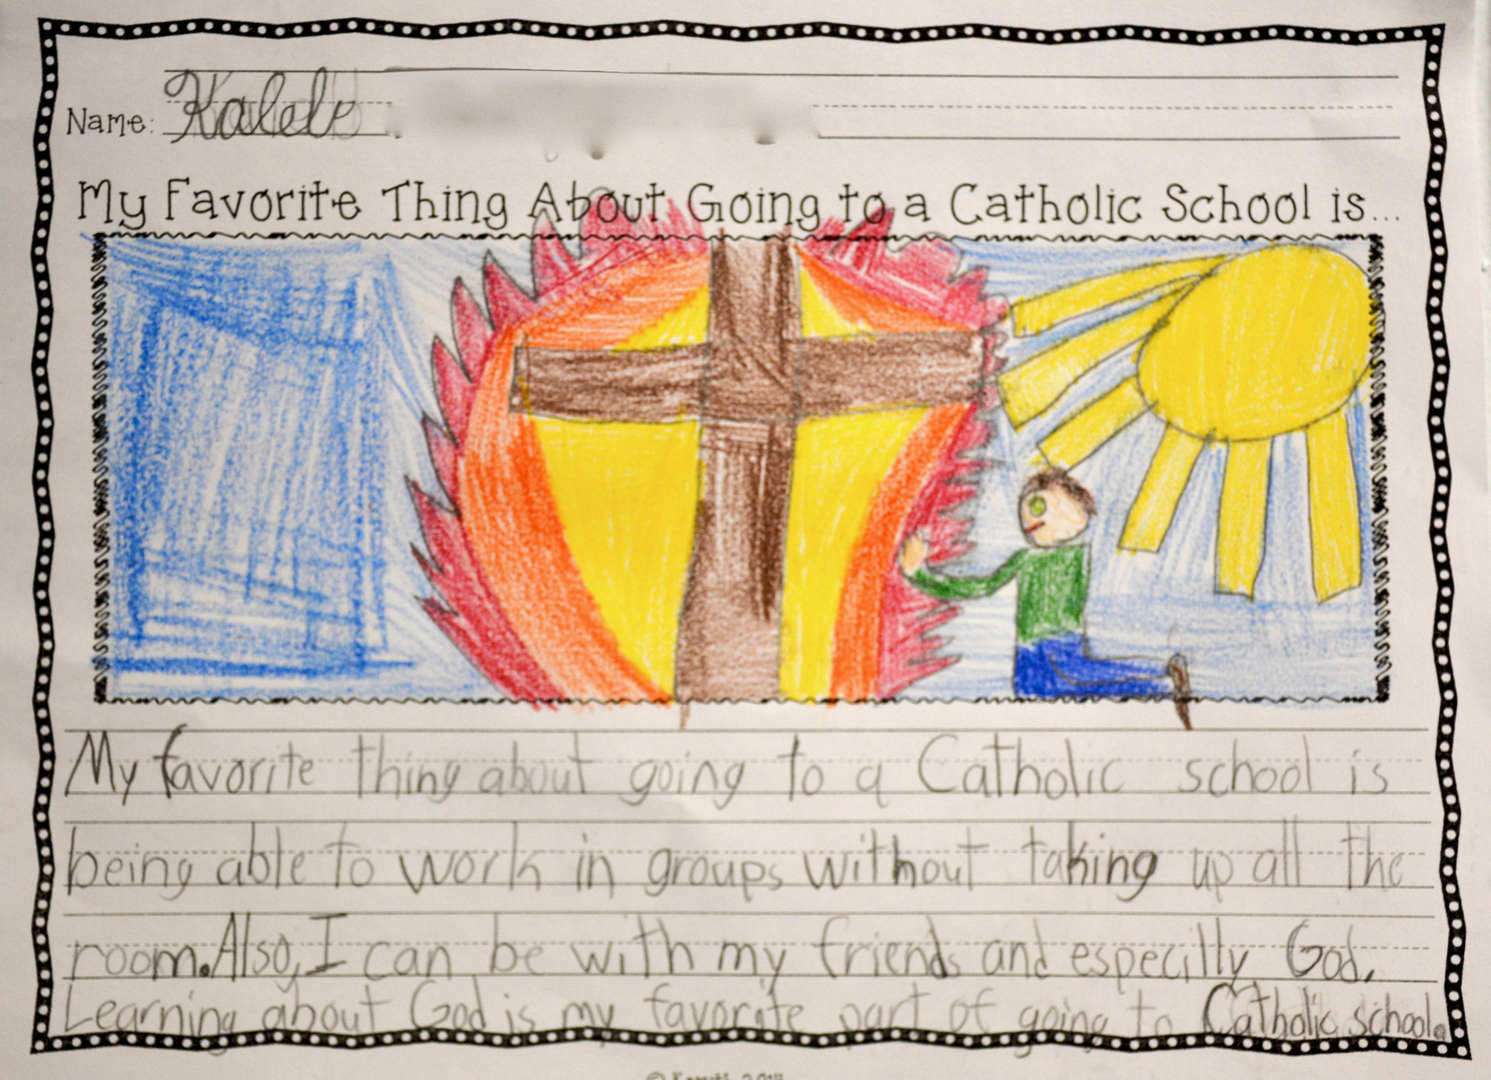 Name: Kaleb
My Favorite Thing About Going to a Catholic School is...
My favorite thing about going to a Catholic school is
being able to work in groups without taking up all the
room. Also, I can be with my friends and especilly God.
Learning about God is my favorite part of going to Catholic school.